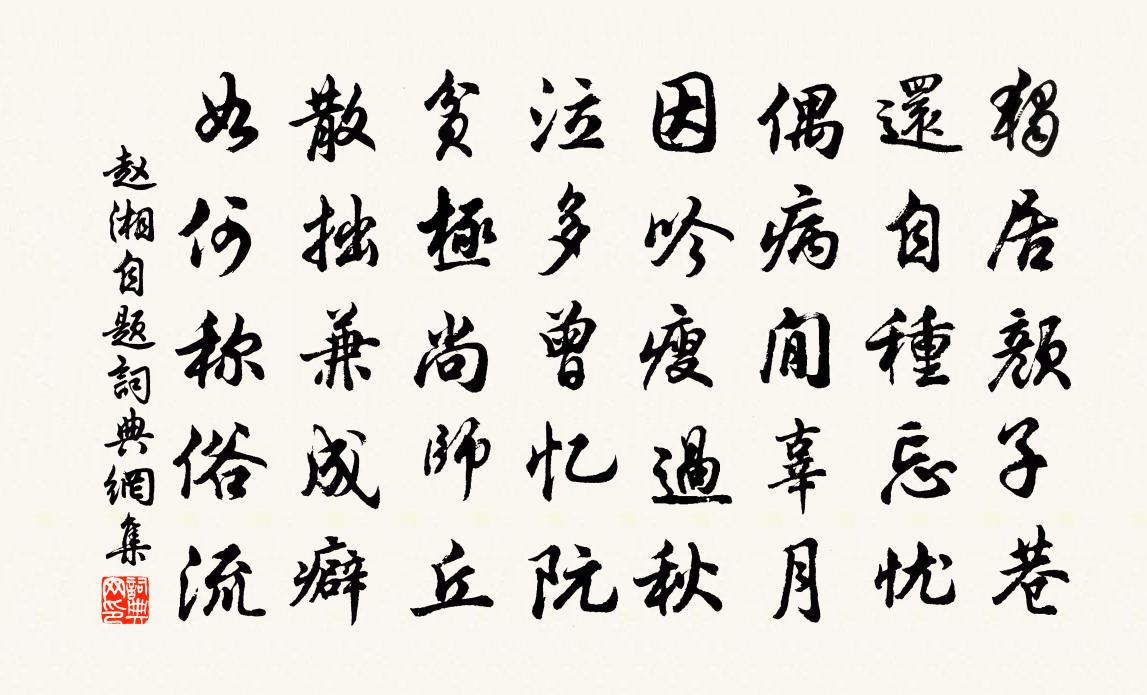 獨居顏子巷
還自種忘忧
偶病閒辜月
因吟瘦過秋
泣多曾忆阮
貧極尚師丘
散拙兼成癖
如何称俗流
赵湘自题詞典網集
詞典网印